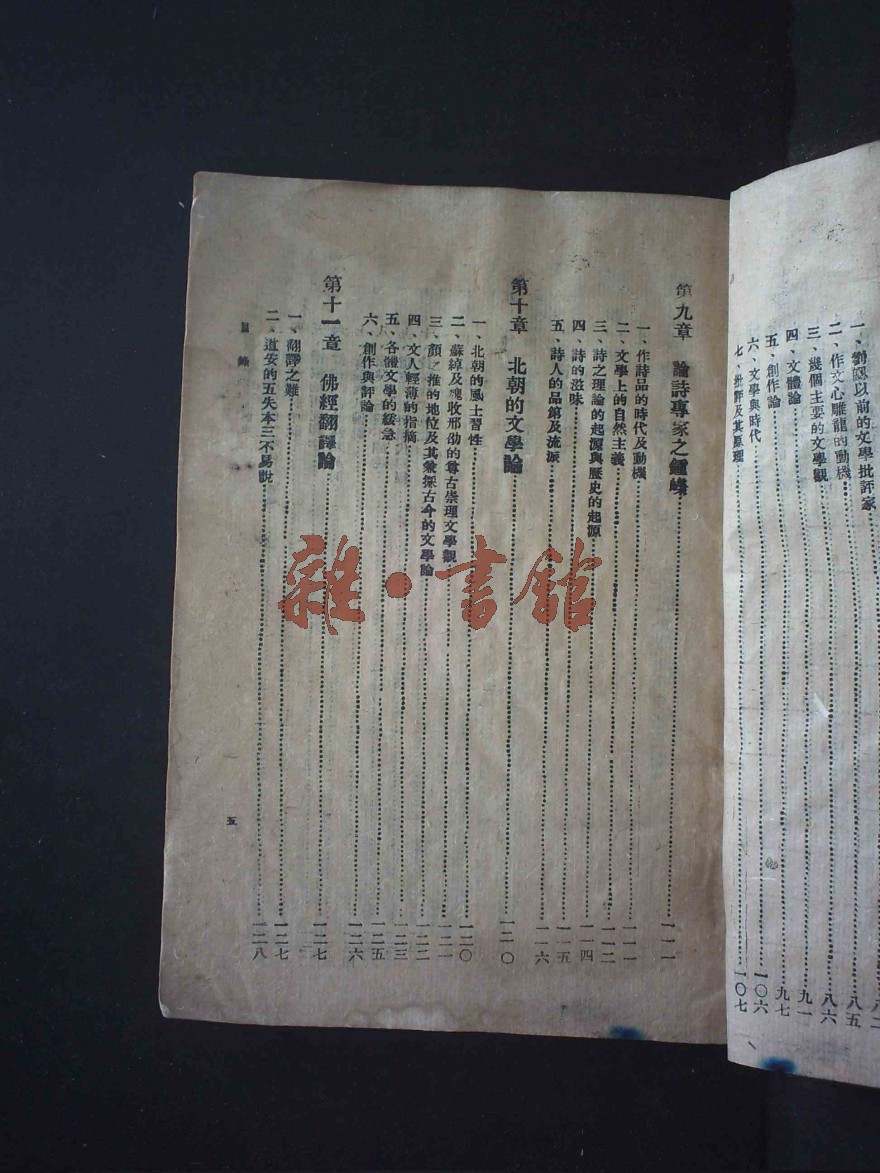 一、劉勰以前的文學批評家
二、作文心雕龍的動機……八五
三、幾個主要的文學觀……八六
四、文體論……九一
五、創作論……九七
六、文學與時代……一〇六
七、批評及其原理……一〇七
第九章 論詩專家之鍾嶸……一一一
一、作詩品的時代及動機……一一一
二、文學上的自然主義……一一二
三、詩之理論的起源與歷史的起源……一一四
四、詩的滋味……一一五
五、詩人的品第及流派……一一六
第十章 北朝的文學論……一二〇
一、北朝的風土習性……一二〇
二、蘇綽及魏收邢劭的尊古崇理文學觀……一二一
三、顏之推的地位及其兼採古今的文學論……一二二
四、文人輕薄的指摘……一二三
五、各體文學的緩急……一二五
六、創作與評論……一二六
第十一章 佛經翻譯論……一二七
一、翻譯之難……一二七
二、道安的五失本三不易說……一二八
目錄
五
雜·書館